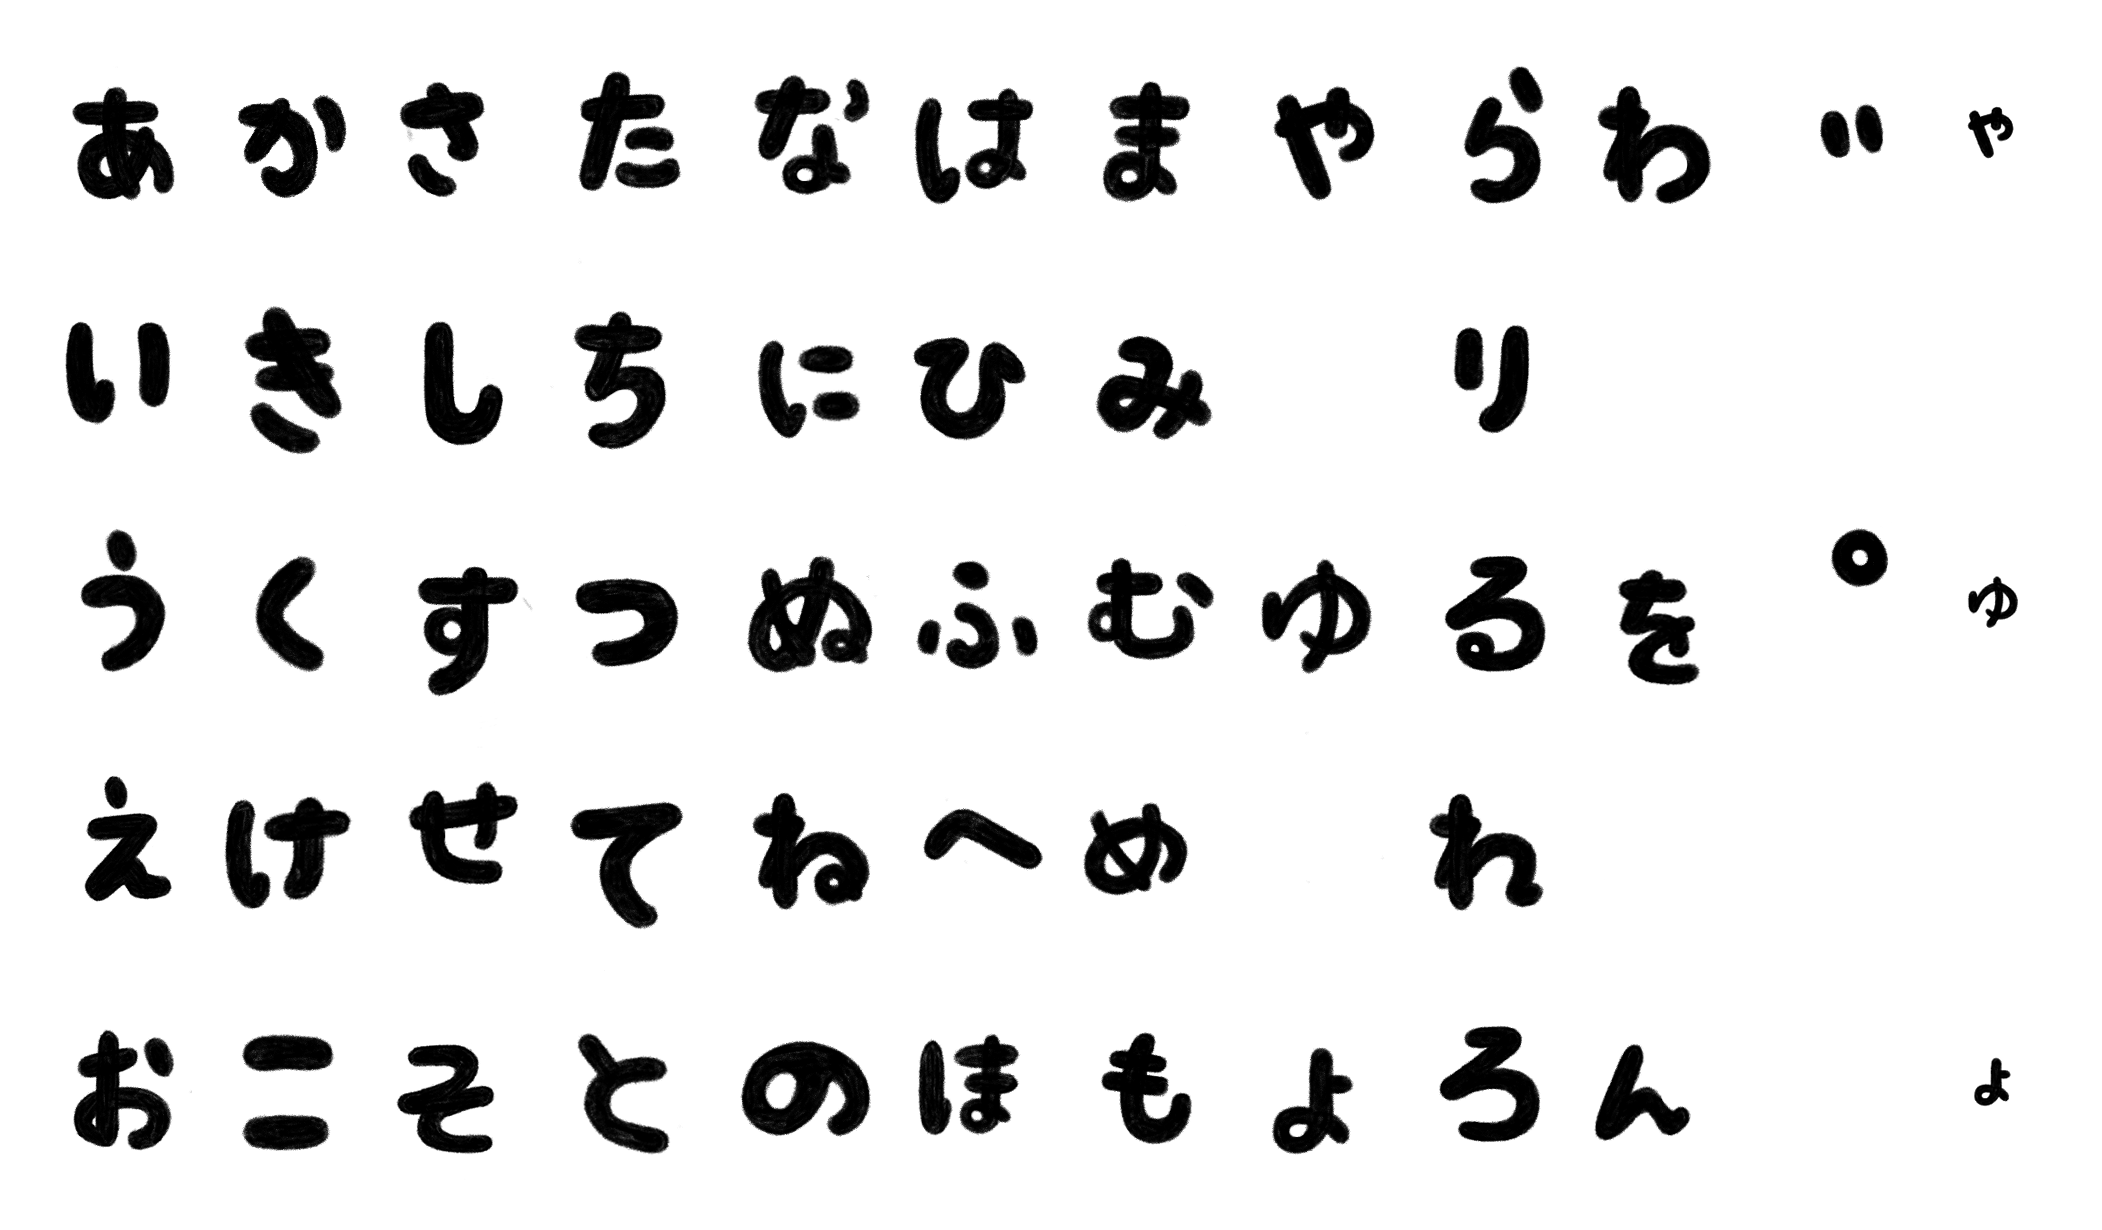 あ か さ た な は ま や ら わ ゛ ゃ
い き し ち に ひ み り
う く す つ ぬ ふ む ゆ る を ゜ ゅ
え け せ て ね へ め れ
お こ そ と の ほ も よ ろ ん ょ